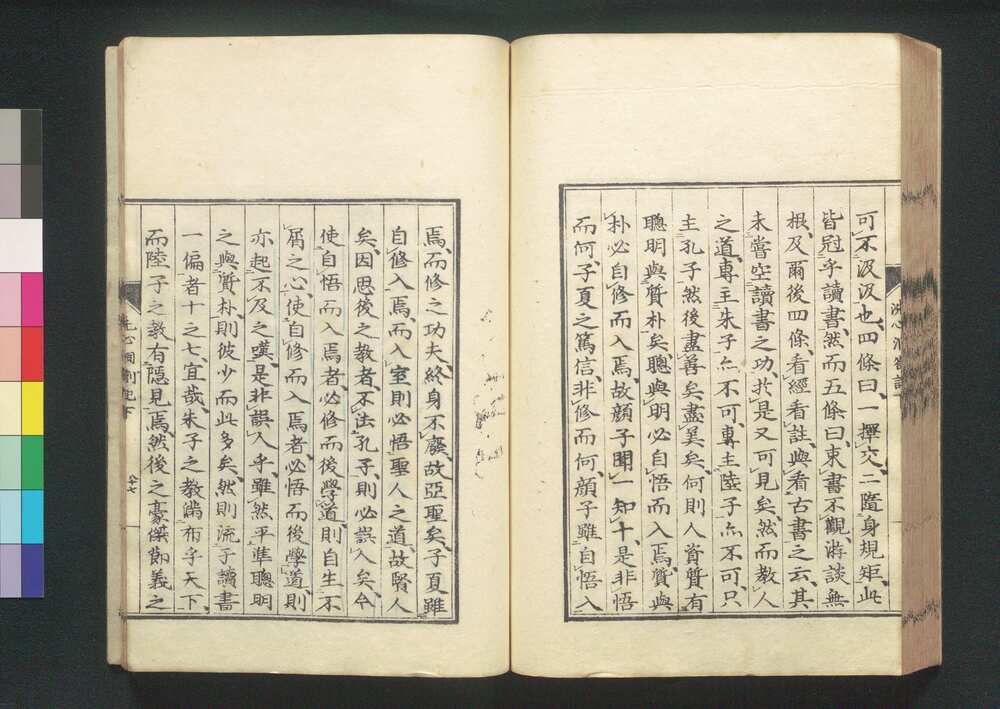 可不汲汲也、四條曰、一擇交、二隨身規矩、此
皆冠乎讀書、然而五條曰、束書不觀、游談無
根、及爾後四條、看經看註、與看古書之云、其
未嘗空讀書之功、於是又可見矣、然而教人
之道、專主朱子亦不可、專主陸子亦不可、只
主孔子然後盡善矣盡美矣、何則人資質有
聰明與質朴矣、聰與明必自悟而入焉、質與
朴必自修而入焉、故顏子聞一知十、是非悟
而何、子夏之篤信、非修而何、顏子雖自悟入
焉、而修之功夫、終身不廢、故亞聖矣、子夏雖
自修入焉、而入室則必悟聖人之道、故賢人
矣、因思後之教者、不法孔子、則必誤入矣、今
使自悟而入焉者、必修而後學道、則自生不
屑之心、使自修而入焉者、必悟而後學道、則
亦起不及之嘆、是非誤人乎、雖然平準聰明
之與質朴、則彼少而此多矣、然則流于讀書
一偏者十之七、宜哉、朱子之教徧布乎天下、
而陸子之教有隱見焉、然後之豪傑節義之